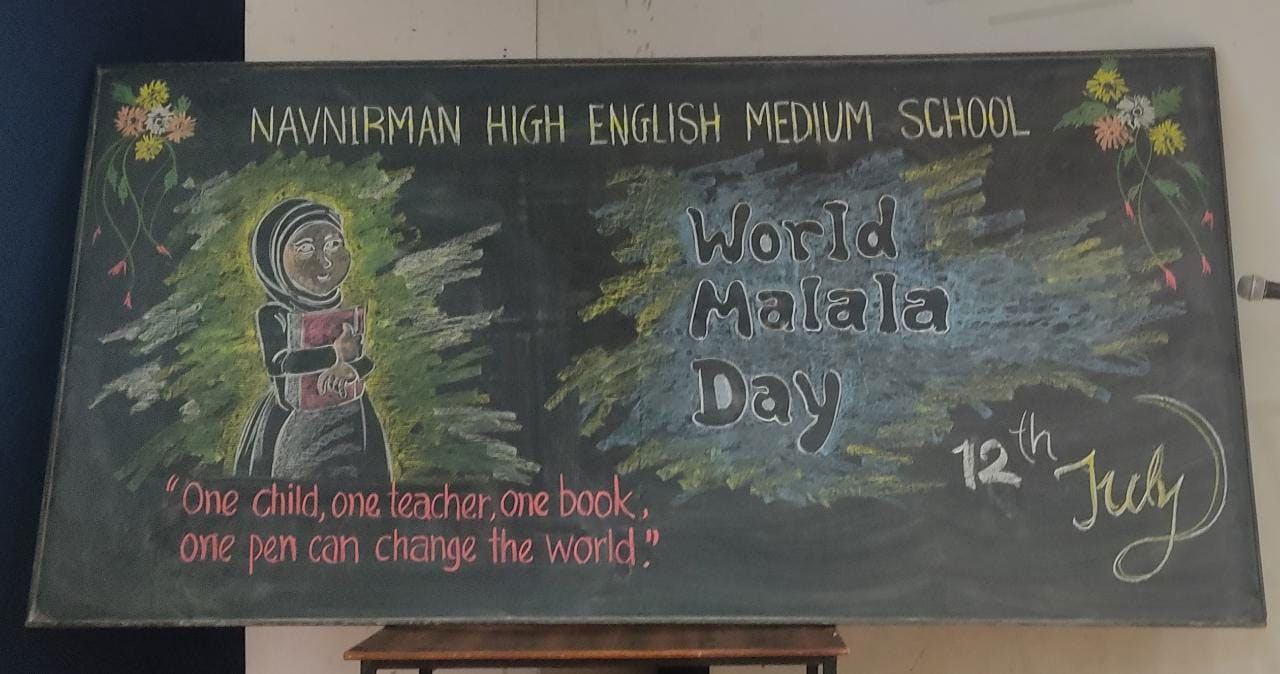 NAVNIRMAN HIGH ENGLISH MEDIUM SCHOOL
World
Malala
Day
12th July
"One child, one teacher, one book,
one pen can change the world."